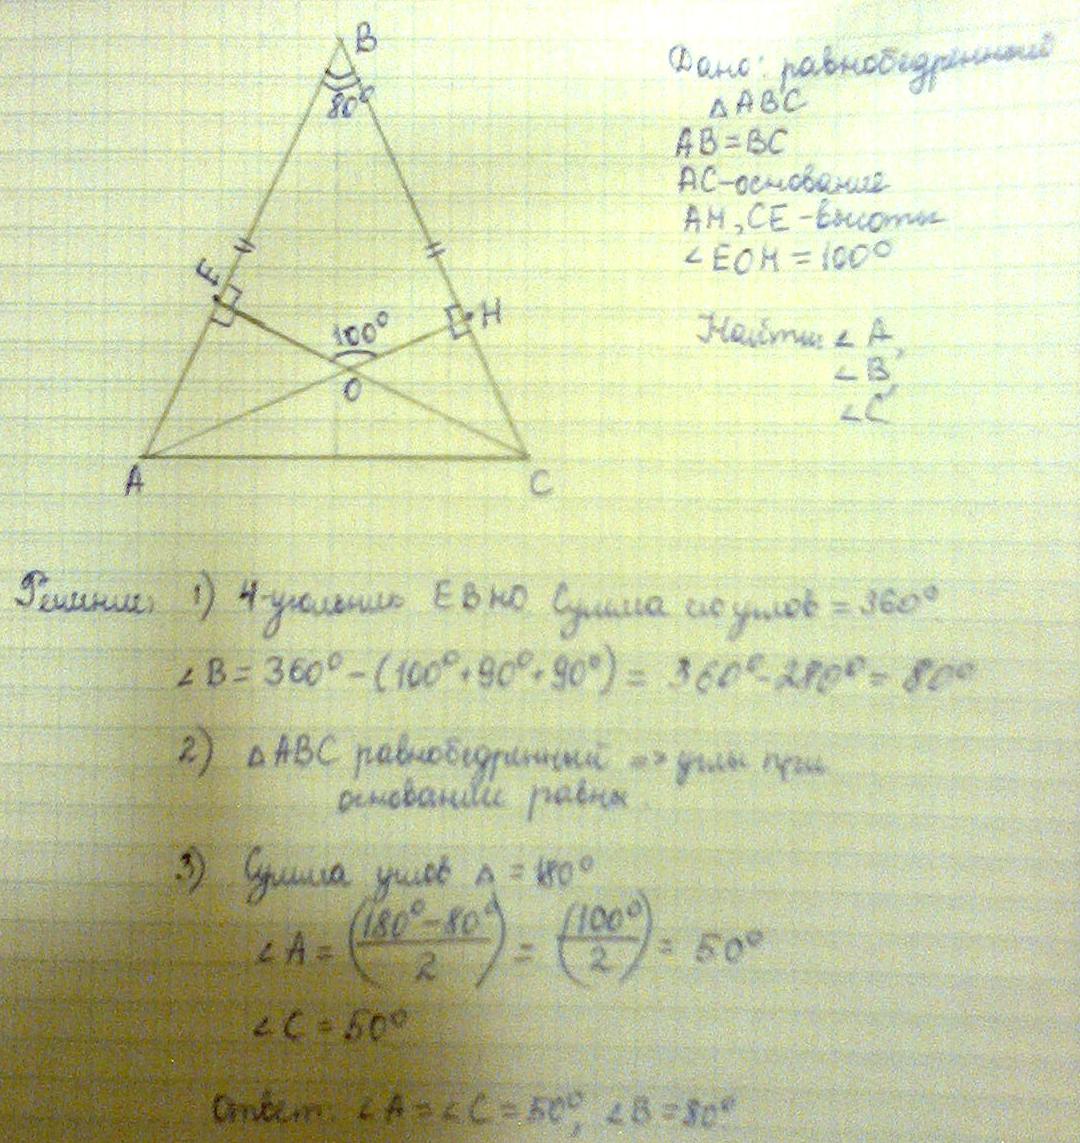 B
80°
E
H
100°
O
A
C
Дано: равнобедренный
△ABC
AB=BC
AC-основание
AH, CE -высоты
∠EOH = 100°
Найти: ∠A,
∠B,
∠C
Решение: 1) 4-угольник EBHO Сумма его углов = 360°
∠B = 360° - (100° + 90° + 90°) = 360° - 280° = 80°
2) △ABC равнобедренный => углы при
основании равны.
3) Сумма углов △ = 180°
∠A = (180° - 80° / 2) = (100° / 2) = 50°
∠C = 50°
Ответ: ∠A = ∠C = 50°, ∠B = 80°